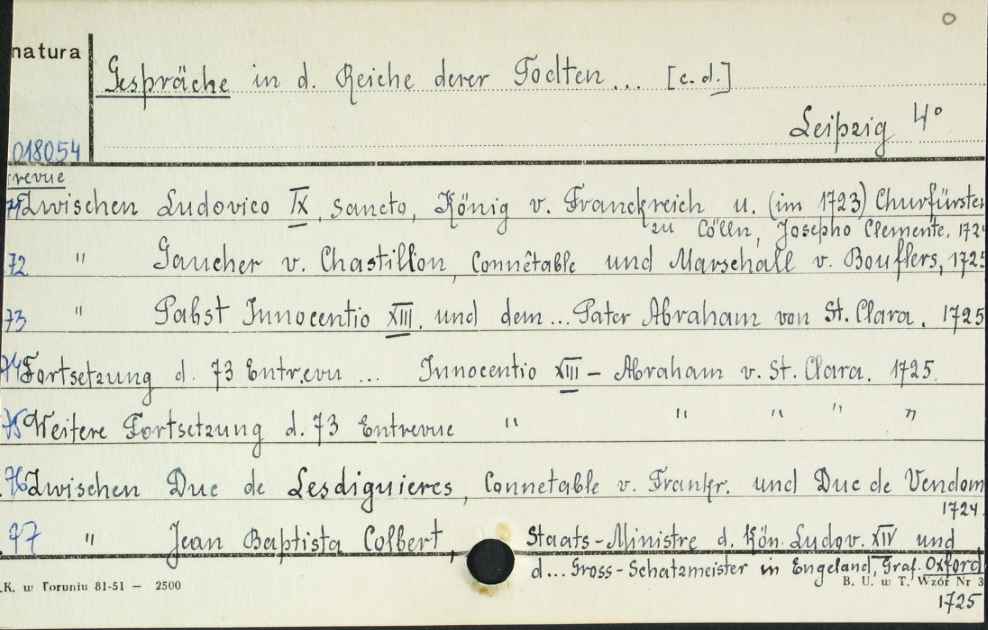 natura
Gespräche in d. Reiche derer Todten... [c.d.]
Leipzig 4°
018054
revue
71 Zwischen Ludovico IX, sancto, König v. Franckreich u. (im 1723) Churfürsten
zu Cölln, Josepho Clemente. 172
72 " Gaucher v. Chastillon, Connêtable und Marschall v. Bouflers, 1725
73 " Pabst Innocentio XIII. und dem... Pater Abraham von St. Clara. 1725
74 Fortsetzung d. 73 Entrevu ... Innocentio XIII - Abraham v. St. Clara. 1725.
75 Weitere Fortsetzung d. 73 Entrevue " " " " "
76 Zwischen Duc de Lesdiguieres, Connetable v. Frankr. und Duc de Vendom
1724.
77 " Jean Baptista Colbert, Staats-Ministre d. Kön. Ludov. XIV und
d... Gross-Schatzmeister in Engeland, Graf. Oxford
.K. w Toruniu 81-51 — 2500
B. U. w T. Wzór Nr 3
1725